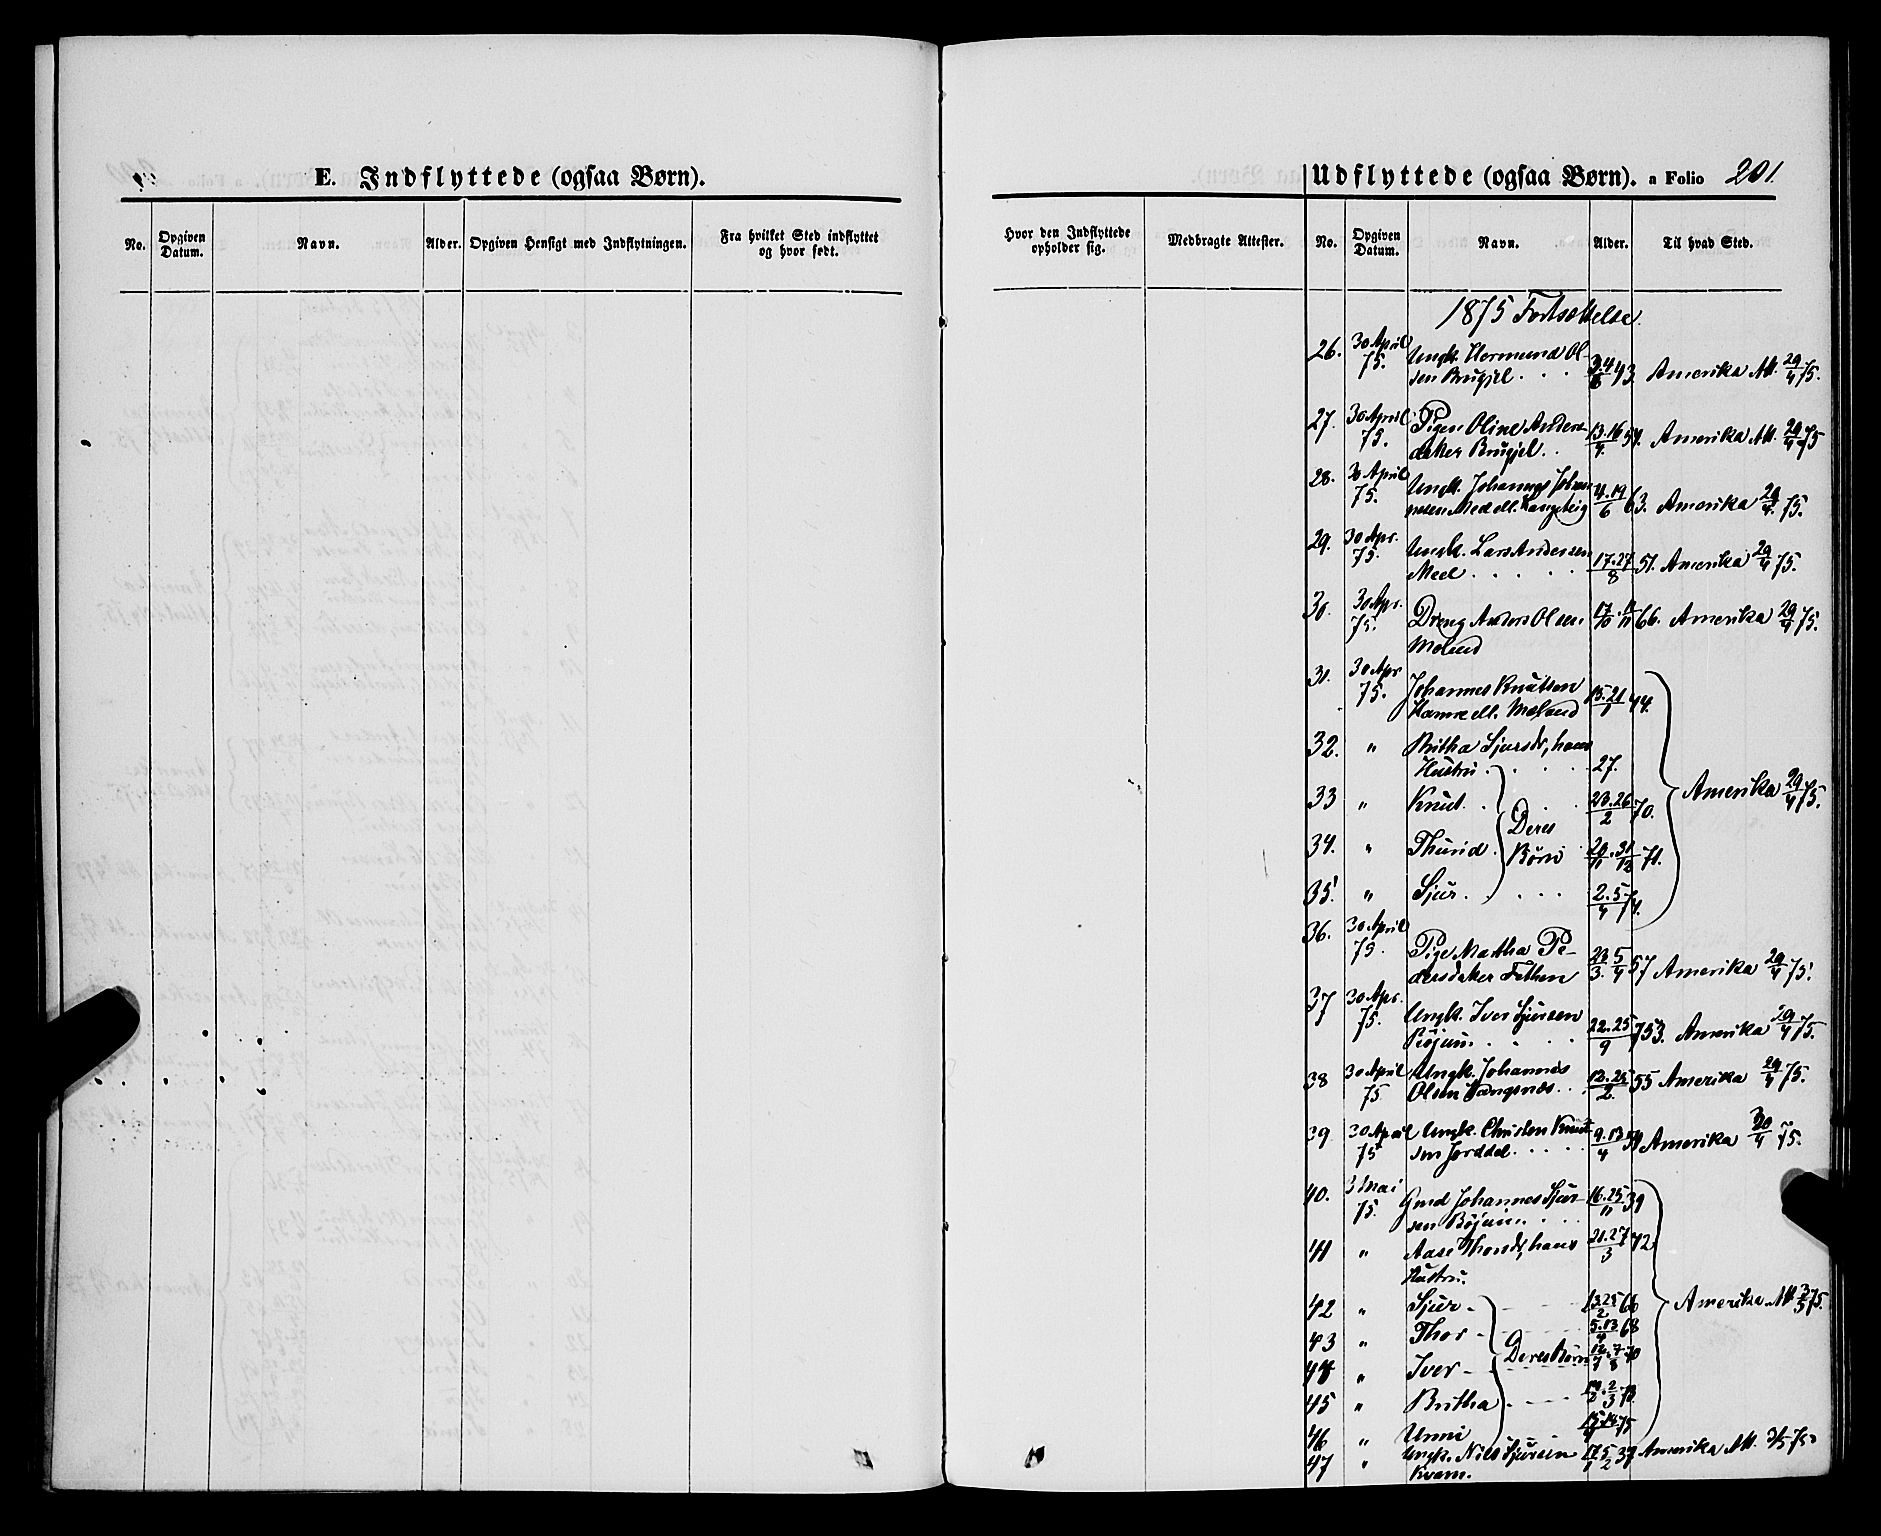 E. Indflyttede (ogsaa Børn).
No.
Opgiven Datum.
Navn.
Alder.
Opgiven Hensigt med Indflytningen.
Fra hvilket Sted indflyttet og hvor født.
Udflyttede (ogsaa Børn). a Folio 201.
Hvor den Indflyttede opholder sig.
Medbragte Attester.
No.
Opgiven Datum.
Navn.
Alder.
Til hvad Sted.
1875 Fortsættelse.
26. 30 April 75. Ungk. Hermund Olsen Brugjel . . . 43. Amerika Att. 29/4 75.
27. 30 April 75. Pigen Oline Andersdatter Brugjel . . 13.16/4 54. Amerika Att. 29/4 75
28. 30 April 75. Ungk. Johannes 4.19/6 63. Amerika 29/4 75.
29. 30 Apr. 75. Ungk. Lars Andersen Meel . . . . 17.27/8 51. Amerika 29/4 75.
30. 30 Apr. 75. Dreng Anders Olsen 17/10 . 11/11 66. Amerika 29/4 75.
31. 30 Apr 75. Johannes Knutsen Hamre ell. 15.21/1 44.
32. " Britha Sjursdr, hans Hustru . . . 27.
33 " Knud . . 23.26/2 70.
34. " Thurid . 29/11 . 31/12 71.
35. " Sjur . . . . 2.5/4 74.
Deres Børn
Amerika 29/4 75.
36. 30 April 75. Pige Martha Pedersdatter 23/3 . 5/4 57 Amerika 29/4 75.
37 30 Apr. 75. Ungk. Iver Sjursen Bøjum . . . . 22.25/9 53. Amerika 29/4 75.
38 30 April 75 Ungk. Johannes Olsen Vangsnes . . 12.25/2 55 Amerika 29/4 75.
39 30 April 75 Ungk. Christen Knudsen Jorddal . . . . 9.13/4 Amerika 30/4 75.
40. 3 Mai 75. Gmd Johannes Sjursen Bøjum . . . 16.25/11 39
41 " Aase Thorsdr, hans Hustru. 21.27/3 42
42 " Sjur - 13.25/2 66
43 " Thor - 5.13/4 68
44 " Iver - 70
45 " Britha 73
46 " Unni 75
Deres Børn
Amerika Att. 3/5 75.
47 " Ungk. Nils Sjursen Kvam. 37 Amerika Att. 3/5 75.